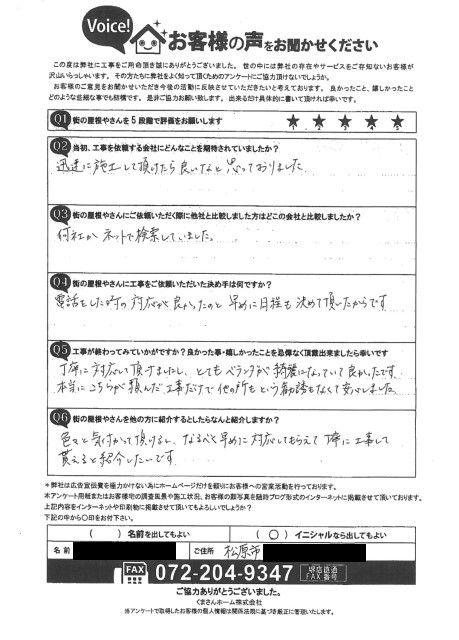 Voice!
お客様の声をお聞かせください
この度は弊社に工事をご用命頂き誠にありがとうございました。 世の中には弊社の存在やサービスをご存知ないお客様が
沢山いらっしゃいます。 その方たちに弊社をよく知って頂くためのアンケートにご協力頂けないでしょうか。
お客様のご意見をお聞かせいただき今後の活動に反映させていただきたいと考えております。 良かったこと、嬉しかったこと
どのような些細な事でも結構です。 是非ご協力お願い致します。 出来るだけ具体的に書いて頂ければ幸いです。
Q1 街の屋根やさんを5段階で評価をお願いします ★ ★ ★ ★ ★
Q2 当初、工事を依頼する会社にどんなことを期待されていましたか?
迅速に施工して頂けたら良いなと思っておりました
Q3 街の屋根やさんにご依頼いただく際に他社と比較しました方はどこの会社と比較しましたか?
何社かネットで検索していました。
Q4 街の屋根やさんに工事をご依頼いただいた決め手は何ですか?
電話をした時の対応が良かったのと早めに日程も決めて頂いたからです
Q5 工事が終わってみていかがですか?良かった事・嬉しかったことを忌憚なく頂戴出来ましたら幸いです
丁寧に対応して頂けましたし、とてもベランダが綺麗になっていて良かったです。
本当にこちらが頼んだ工事だけで他の所もという勧誘もなくて安心しました。
Q6 街の屋根やさんを他の方に紹介するとしたらなんと紹介しますか?
色々と気付かって頂けるし、なるべく早めに対応してもらえて丁寧に工事して
貰えると紹介したいです
*弊社は広告宣伝費を極力かけない為にホームページだけを頼りにお客様への営業活動を行っております。
本アンケート用紙またはお客様宅の調査風景や施工状況、お客様の顔写真を随時ブログ形式のインターネットに掲載させて頂いております。
上記内容をインターネットや印刷物に掲載させて頂いてもよろしいでしょうか?
下記の中から〇印をお付下さい。
( ) 名前を出してもよい ( 〇 ) イニシャルなら出してもよい
名前 ご住所 松原市
FAX 072-204-9347 堺店直通 FAX番号
ご協力ありがとうございました。
くまさんホーム株式会社
当アンケートで取得したお客様の個人情報は関係法規に基づき厳正に管理いたします。